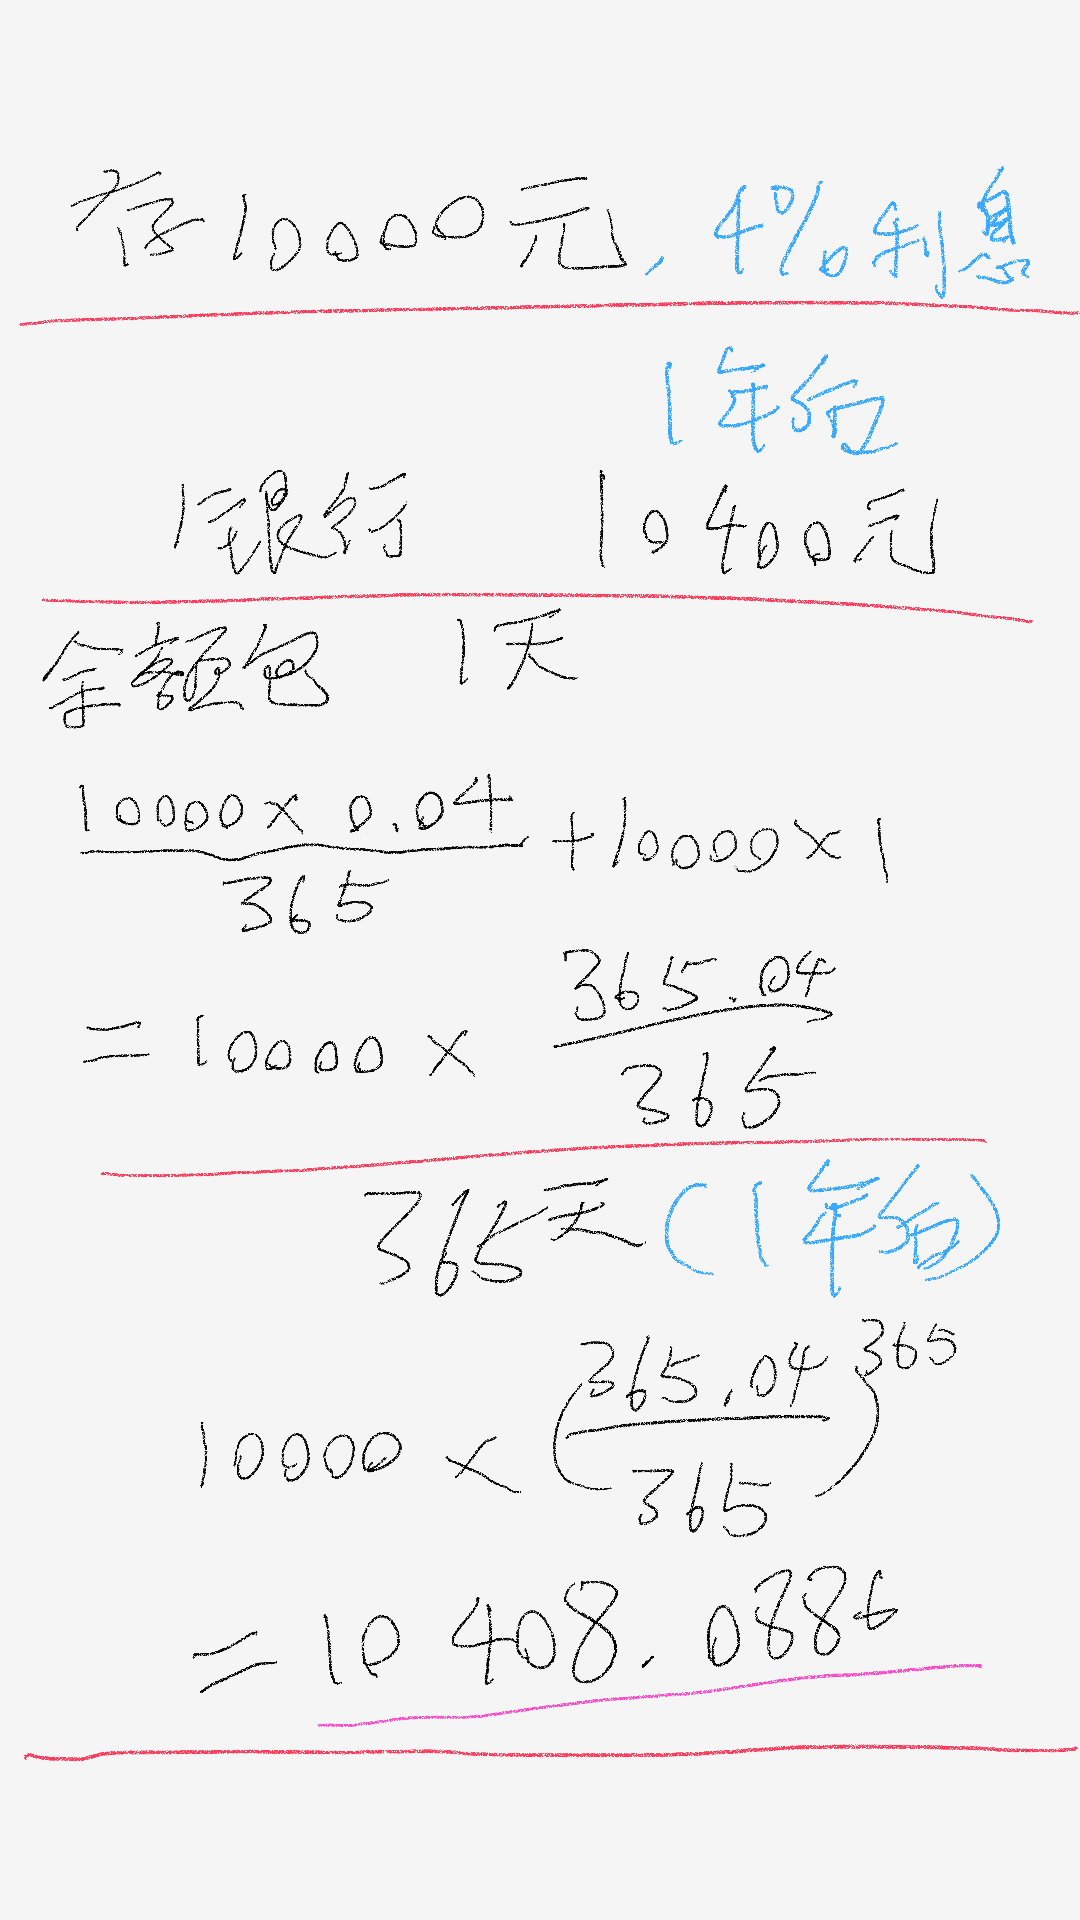 存10000元, 4%利息
1年后
1银行 10400元
余额包 1天
10000×0.04
365
+10000×1
=10000×
365.04
365
365天(1年后)
10000×(365.04/365)^365
=10408.0886